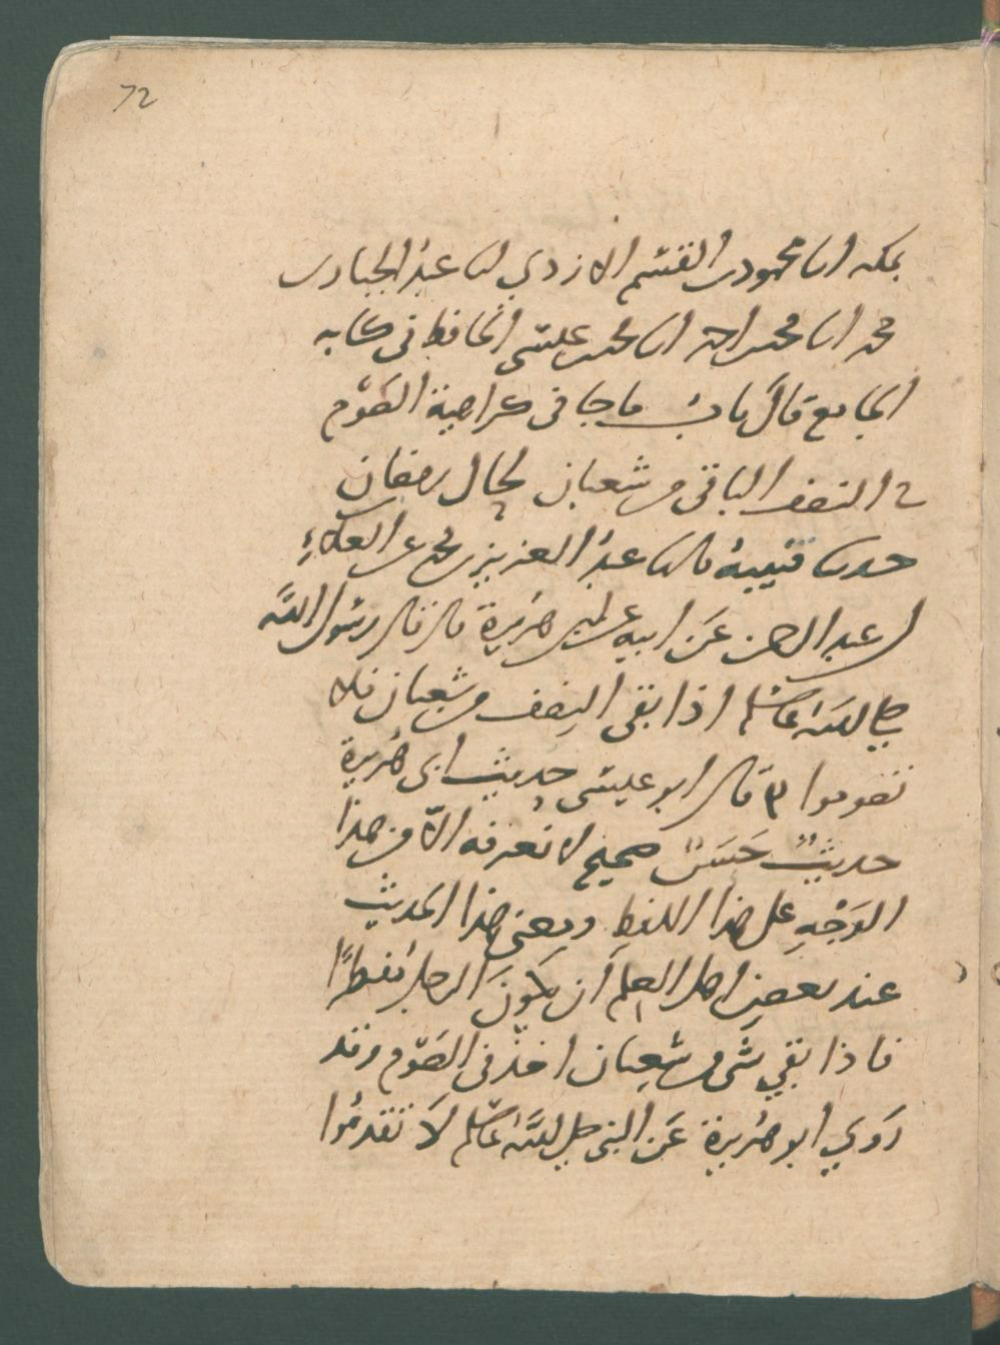 72
بمكه انا محمود بن القسم الازدي انا عبد الجبار بن
محمد انا محمد بن احمد انا محمد بن عيسى الحافظ فى كتابه
الجامع قال باب ما جا فى كراهية الصوم
في النصف الباقى من شعبان لحال رمضان
حدثنا قتيبة قال ثنا عبد العزيز بن محمد عن العلاء
بن عبد الرحمن عن ابيه عن ابي هريرة قال قال رسول الله
صلى الله عليه وسلم اذا بقى النصف من شعبان فلا
تصوموا قال ابو عيسى حديث ابى هريرة
حديث حسن صحيح لا نعرفه الا من هذا
الوجه على هذا اللفظ ومعنى هذا الحديث
عند بعض اهل العلم ان يكون الرجل مفطرا
فاذا بقي شى من شعبان اخذ فى الصوم وقد
روي ابو هريرة عن النبى صلى الله عليه وسلم لا تقدموا